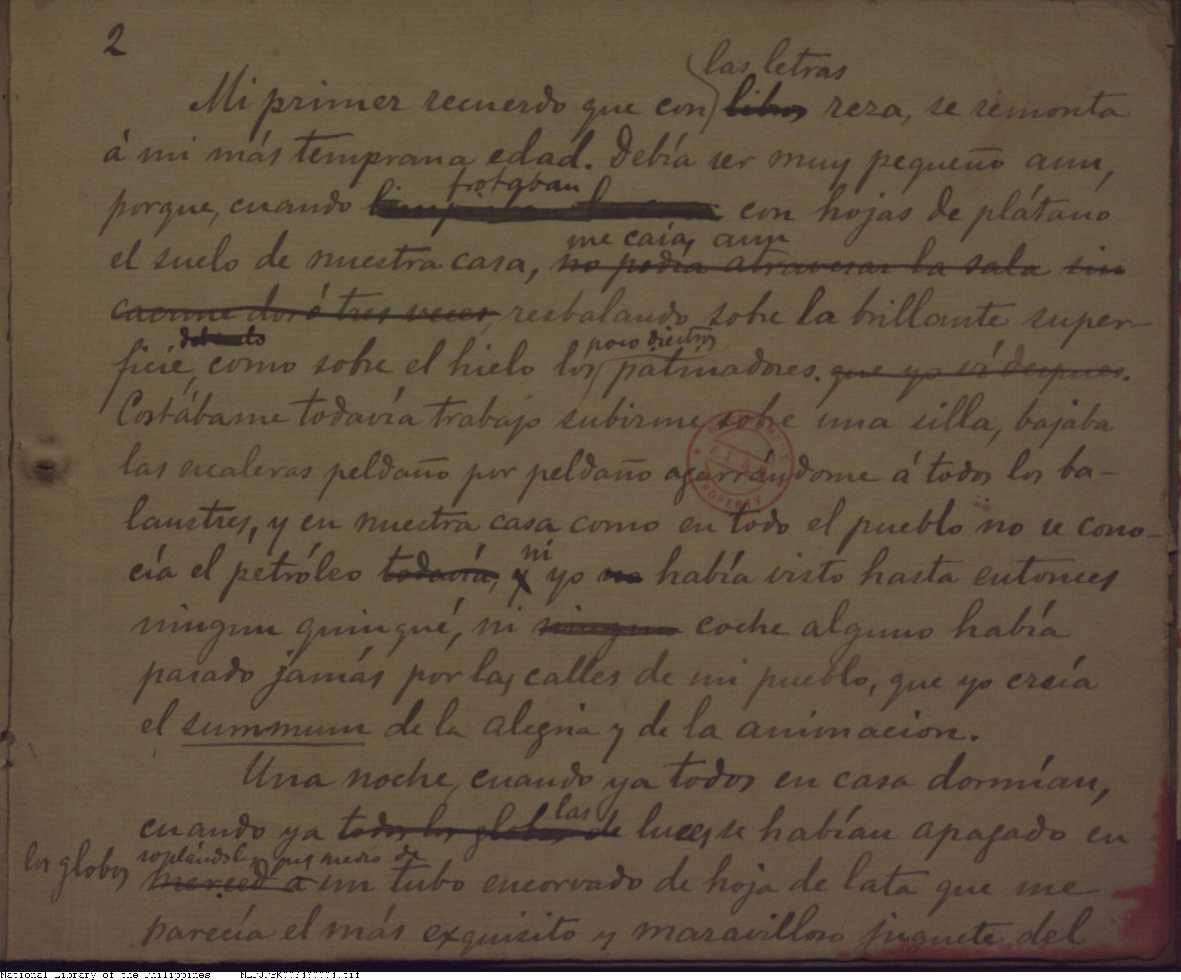 2
las letras
Mi primer recuerdo que con libros reza, se remonta
á mi más temprana edad. Debía ser muy pequeño aun,
frotaban
porque, cuando con hojas de plátano
me caía, aun
el suelo de nuestra casa, no podía atravesar la sala sin
caerme dos ó tres veces, resbalando sobre la brillante super-
poco diestros
ficie como sobre el hielo los patinadores. que yo ví despues.
Costábame todavía trabajo subirme sobre una silla, bajaba
las escaleras peldaño por peldaño agarrándome á todos los ba-
laustres, y en nuestra casa como en todo el pueblo no se cono-
ni
cía el petróleo todavía, y yo no había visto hasta entonces
ningun quinqué, ni ningun coche alguno había
pasado jamás por las calles de mi pueblo, que yo creía
el summum de la alegria y de la animacion.
Una noche, cuando ya todos en casa dormían,
las
cuando ya todos los globos de luces se habían apagado en
los globos soplándolas por medio de
merced á un tubo encorvado de hoja de lata que me
parecía el más exquisito y maravilloso juguete del
PROPERTY
National Library of the Philippines